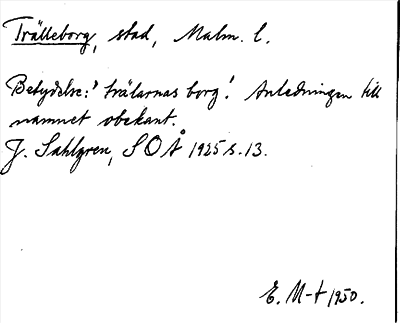 Trälleborg, stad, Malm. l.
Betydelse: 'trälarnas borg'. Anledningen till
namnet obekant.
J. Sahlgren, SOÅ 1925 s. 13.
E. M-t 1950.